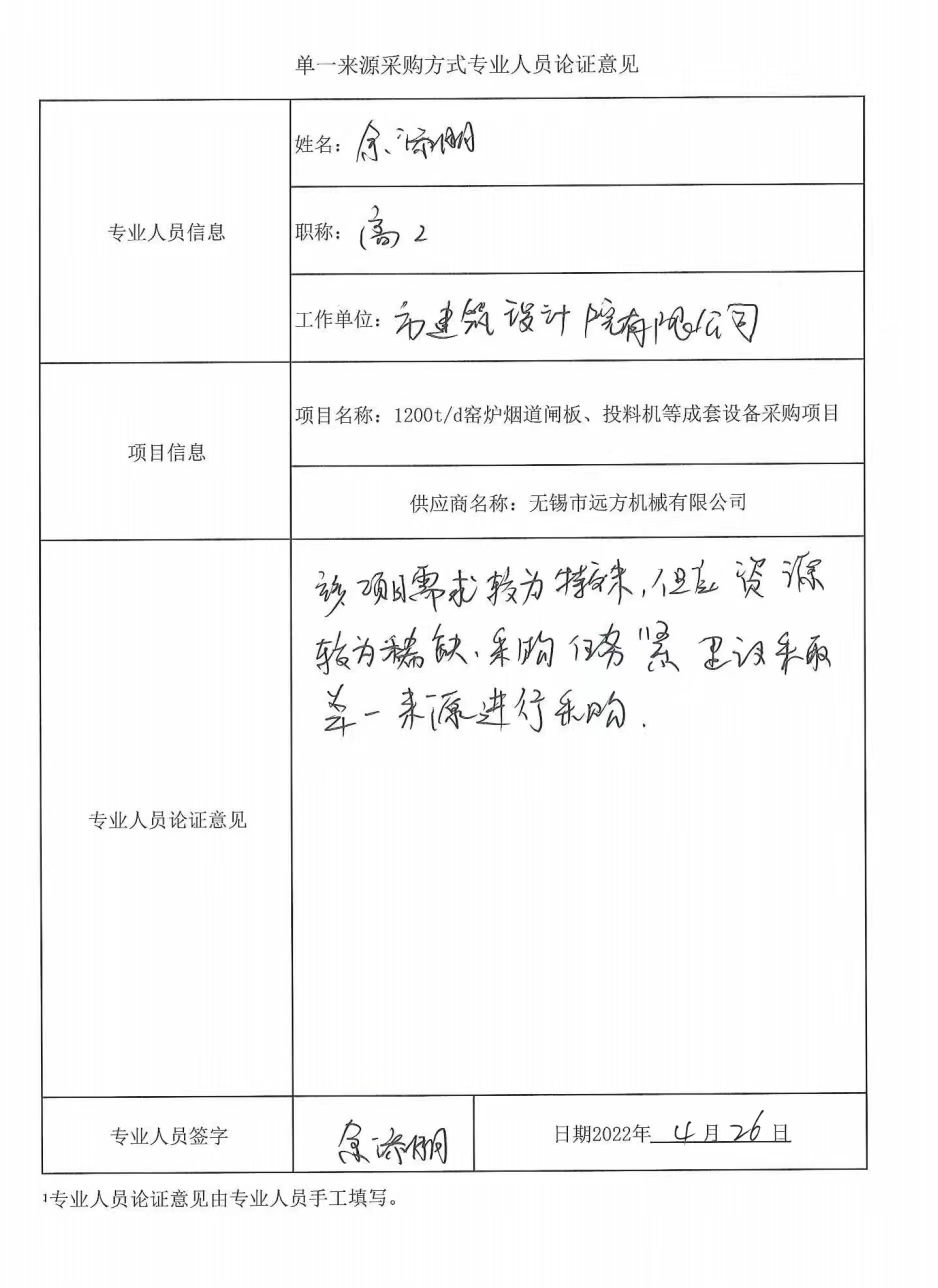 单一来源采购方式专业人员论证意见
专业人员信息
姓名：余添明
职称：高工
工作单位：市建筑设计院有限公司
项目信息
项目名称：1200t/d窑炉烟道闸板、投料机等成套设备采购项目
供应商名称：无锡市远方机械有限公司
专业人员论证意见
该项目需求较为特殊，供应资源
较为稀缺、采购任务紧 建议采取
单一来源进行采购．
专业人员签字
余添明
日期2022年 4 月 26 日
¹专业人员论证意见由专业人员手工填写。